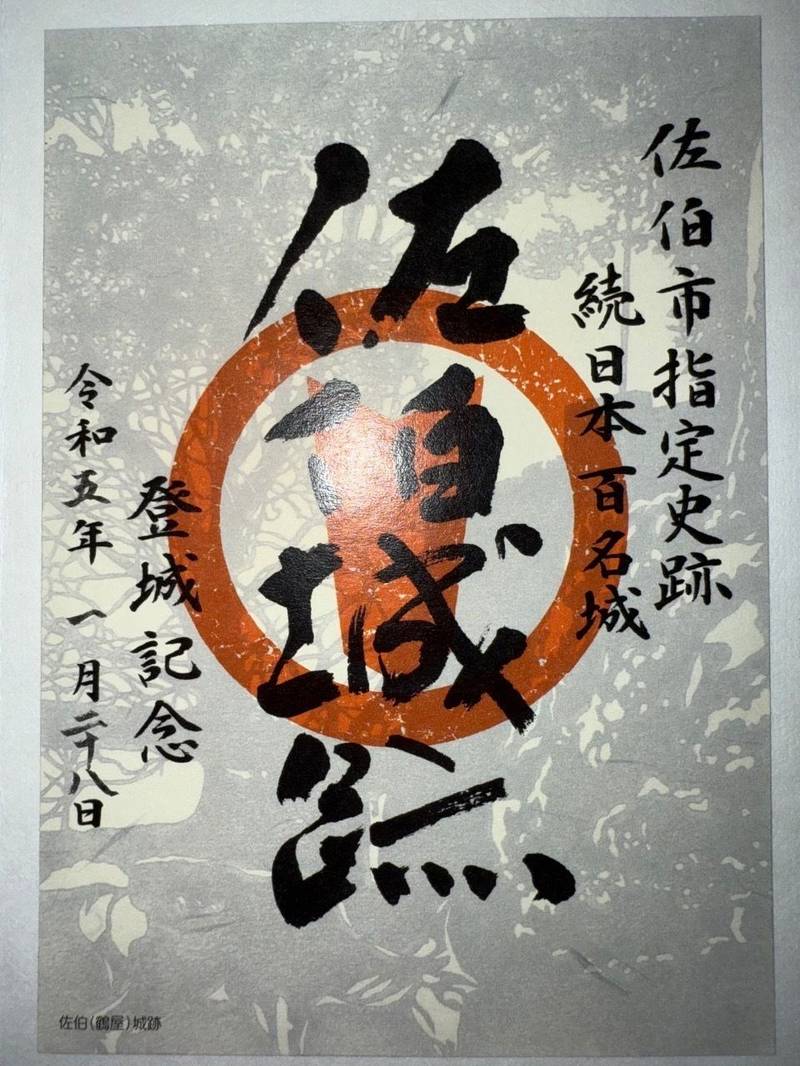 佐伯市指定史跡
続日本百名城
佐伯城跡
登城記念
令和五年一月二十八日
佐伯(鶴屋)城跡